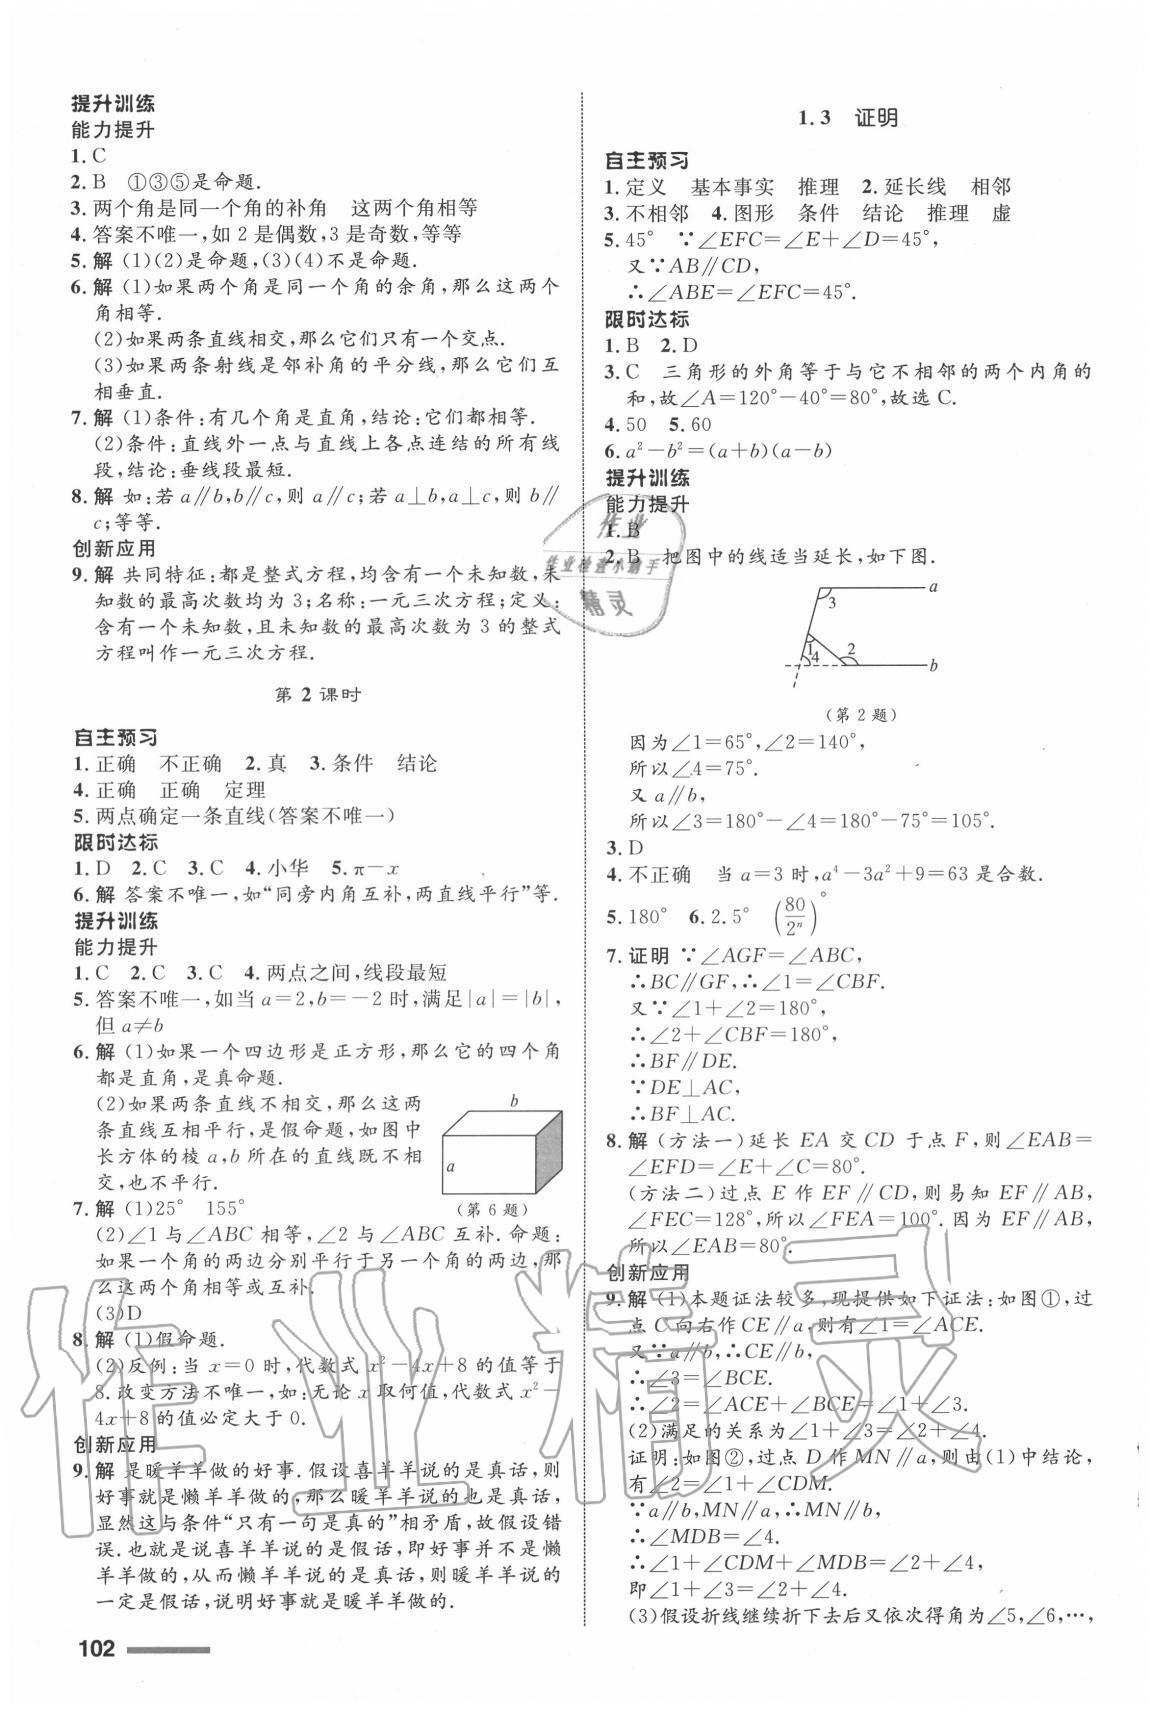 提升训练
能力提升
1. C
2. B ①③⑤是命题.
3. 两个角是同一个角的补角 这两个角相等
4. 答案不唯一,如 2 是偶数,3 是奇数,等等
5. 解 (1)(2)是命题,(3)(4)不是命题.
6. 解 (1)如果两个角是同一个角的余角,那么这两个
角相等.
(2)如果两条直线相交,那么它们只有一个交点.
(3)如果两条射线是邻补角的平分线,那么它们互
相垂直.
7. 解 (1)条件:有几个角是直角,结论:它们都相等.
(2)条件:直线外一点与直线上各点连结的所有线
段,结论:垂线段最短.
8. 解 如:若 a∥b,b∥c,则 a∥c;若 a⊥b,a⊥c,则 b∥
c;等等.
创新应用
9. 解 共同特征:都是整式方程,均含有一个未知数,未
知数的最高次数均为 3;名称:一元三次方程;定义:
含有一个未知数,且未知数的最高次数为 3 的整式
方程叫作一元三次方程.
第 2 课时
自主预习
1. 正确 不正确 2. 真 3. 条件 结论
4. 正确 正确 定理
5. 两点确定一条直线(答案不唯一)
限时达标
1. D 2. C 3. C 4. 小华 5. π-x
6. 解 答案不唯一,如“同旁内角互补,两直线平行”等.
提升训练
能力提升
1. C 2. C 3. C 4. 两点之间,线段最短
5. 答案不唯一,如当 a=2,b=-2 时,满足|a|=|b|,
但 a≠b
6. 解 (1)如果一个四边形是正方形,那么它的四个角
都是直角,是真命题.
(2)如果两条直线不相交,那么这两
条直线互相平行,是假命题,如图中
长方体的棱 a,b 所在的直线既不相
交,也不平行.
b
a
(第 6 题)
7. 解 (1)25° 155°
(2)∠1 与∠ABC 相等,∠2 与∠ABC 互补. 命题:
如果一个角的两边分别平行于另一个角的两边,那
么这两个角相等或互补.
(3)D
8. 解 (1)假命题.
(2)反例:当 x=0 时,代数式 x²-4x+8 的值等于
8. 改变方法不唯一,如:无论 x 取何值,代数式 x²-
4x+8 的值必定大于 0.
创新应用
9. 解 是暖羊羊做的好事. 假设喜羊羊说的是真话,则
好事就是懒羊羊做的,那么暖羊羊说的也是真话,
显然这与条件“只有一句是真的”相矛盾,故假设错
误. 也就是说喜羊羊说的是假话,即好事并不是懒
羊羊做的,从而懒羊羊说的是真话,则暖羊羊说的
一定是假话,说明好事就是暖羊羊做的.
102
1.3 证明
自主预习
1. 定义 基本事实 推理 2. 延长线 相邻
3. 不相邻 4. 图形 条件 结论 推理 虚
5. 45° ∵∠EFC=∠E+∠D=45°,
又∵AB∥CD,
∴∠ABE=∠EFC=45°.
限时达标
1. B 2. D
3. C 三角形的外角等于与它不相邻的两个内角的
和,故∠A=120°-40°=80°,故选 C.
4. 50 5. 60
6. a²-b²=(a+b)(a-b)
提升训练
能力提升
1. B
2. B 把图中的线适当延长,如下图.
a
3
1 2
4 b
(第 2 题)
因为∠1=65°,∠2=140°,
所以∠4=75°.
又 a∥b,
所以∠3=180°-∠4=180°-75°=105°.
3. D
4. 不正确 当 a=3 时,a⁴-3a²+9=63 是合数.
5. 180° 6. 2.5° (80/2ⁿ)°
7. 证明 ∵∠AGF=∠ABC,
∴BC∥GF,∴∠1=∠CBF.
又∵∠1+∠2=180°,
∴∠2+∠CBF=180°,
∴BF∥DE.
∵DE⊥AC,
∴BF⊥AC.
8. 解 (方法一)延长 EA 交 CD 于点 F,则∠EAB=
∠EFD=∠E+∠C=80°.
(方法二)过点 E 作 EF∥CD,则易知 EF∥AB,
∠FEC=128°,所以∠FEA=100°. 因为 EF∥AB,
所以∠EAB=80°.
创新应用
9. 解 (1)本题证法较多,现提供如下证法:如图①,过
点 C 向右作 CE∥a,则有∠1=∠ACE.
又∵a∥b,∴CE∥b,
∴∠3=∠BCE.
∴∠2=∠ACE+∠BCE=∠1+∠3.
(2)满足的关系为∠1+∠3=∠2+∠4.
证明:如图②,过点 D 作 MN∥a,则由(1)中结论,
有∠2=∠1+∠CDM.
∵a∥b,MN∥a,∴MN∥b,
∴∠MDB=∠4.
∴∠1+∠CDM+∠MDB=∠2+∠4,
即∠1+∠3=∠2+∠4.
(3)假设折线继续折下去后又依次得角为∠5,∠6,…,
作业
作业检查小助手
精灵
作业精灵